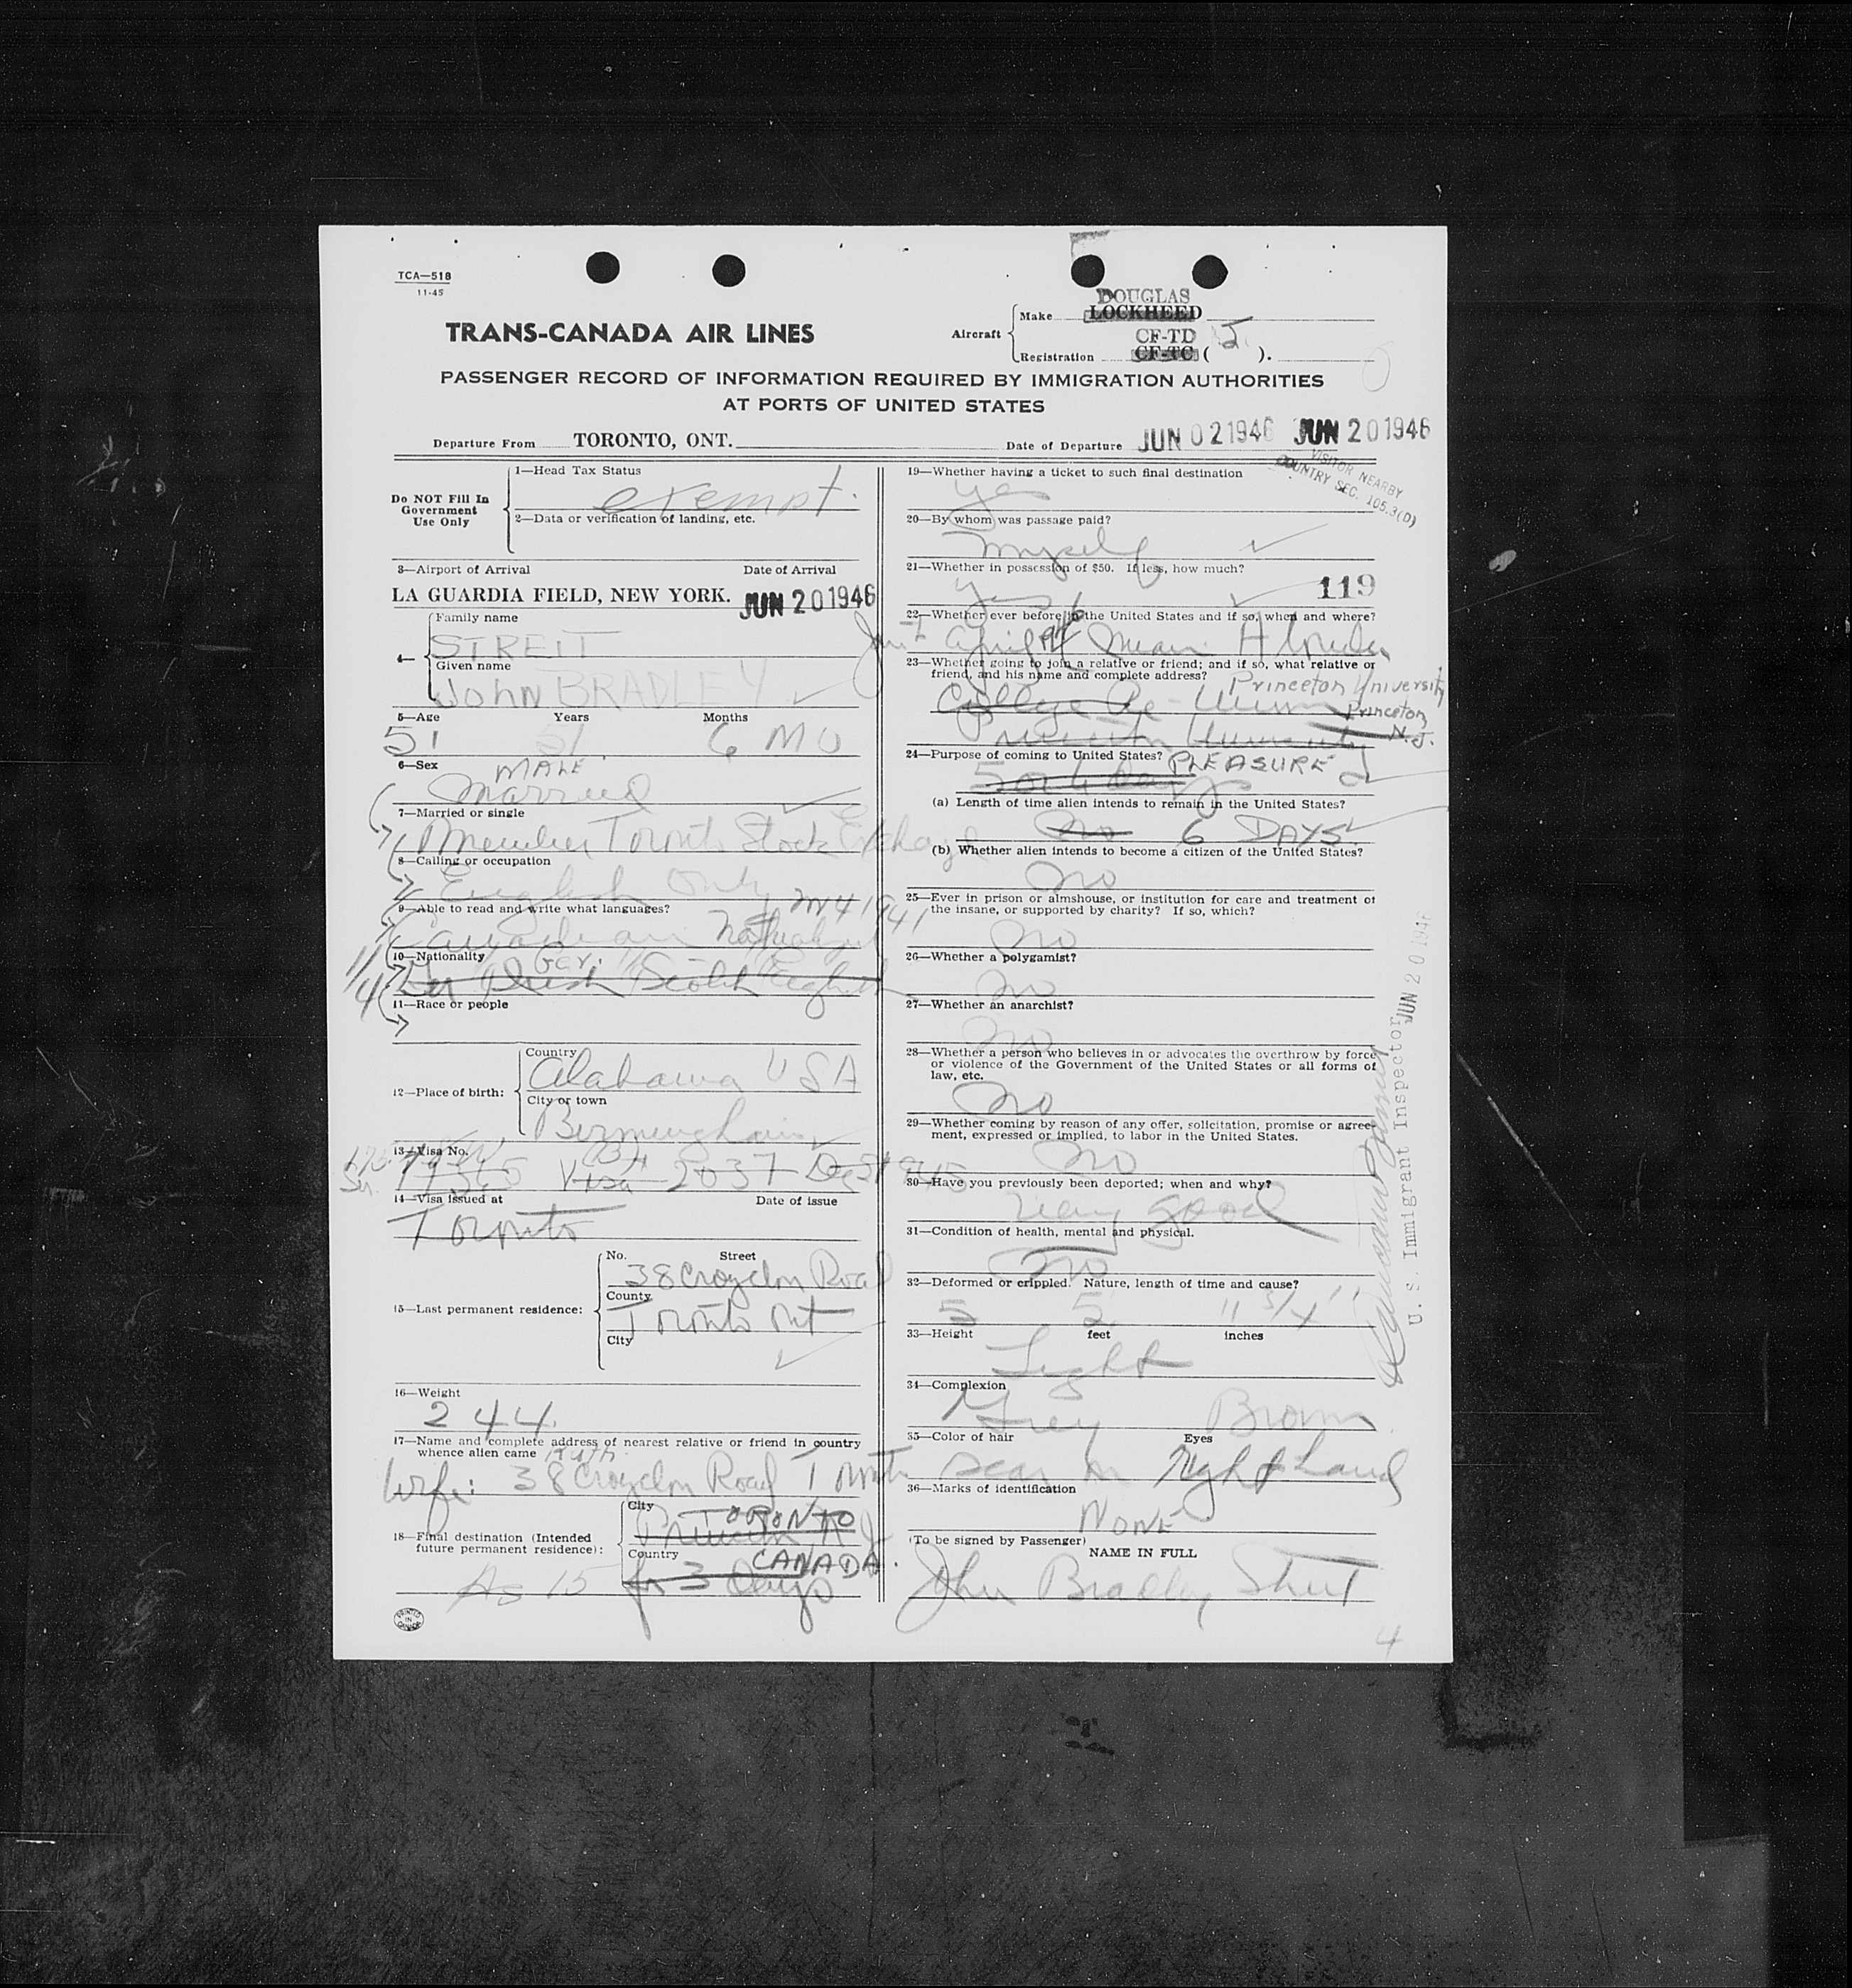 TCA—518
11-45
TRANS-CANADA AIR LINES
Aircraft
Make
DOUGLAS
LOCKHEED
Registration
CF-TD
CF-TC ( 5 ).
PASSENGER RECORD OF INFORMATION REQUIRED BY IMMIGRATION AUTHORITIES
AT PORTS OF UNITED STATES
Departure From TORONTO, ONT.
Date of Departure JUN 021946 JUN 201946
VISITOR NEARBY
COUNTRY SEC. 105.3(D)
Do NOT Fill In
Government
Use Only
1—Head Tax Status
exempt.
2—Data or verification of landing, etc.
3—Airport of Arrival Date of Arrival
LA GUARDIA FIELD, NEW YORK. JUN 201946
4—
Family name
STREIT
Given name
John BRADLEY
5—Age Years Months
51 51 6 MO
6—Sex MALE
Married
7—Married or single
Member Toronto Stock Exchange
8—Calling or occupation
English Only
9—Able to read and write what languages?
Canadian 1941
10—Nationality
Irish Scotch English
11—Race or people
12—Place of birth:
Country
Alabama USA
City or town
Birmingham
13—Visa No.
Visa 2037 Dec
14—Visa issued at Date of issue
Toronto
15—Last permanent residence:
No. Street
38 Croydon Road
County
Toronto Ont
City
16—Weight
244
17—Name and complete address of nearest relative or friend in country
whence alien came Ruth
Wife: 38 Croydon Road Toronto
18—Final destination (Intended
future permanent residence):
City
TORONTO
Princeton N J
Country
CANADA.
As 15 for 3 days
PRINTED
IN
CANADA
19—Whether having a ticket to such final destination
yes
20—By whom was passage paid?
myself
21—Whether in possession of $50. If less, how much?
yes
119
22—Whether ever before in the United States and if so, when and where?
April Miami Florida
23—Whether going to join a relative or friend; and if so, what relative or
friend, and his name and complete address?
Princeton University
Princeton,
N.J.
College Re-Union
Princeton University
24—Purpose of coming to United States? PLEASURE
5 or 6 days
(a) Length of time alien intends to remain in the United States?
no 6 DAYS.
(b) Whether alien intends to become a citizen of the United States?
no
25—Ever in prison or almshouse, or institution for care and treatment of
the insane, or supported by charity? If so, which?
no
26—Whether a polygamist?
no
27—Whether an anarchist?
no
28—Whether a person who believes in or advocates the overthrow by force
or violence of the Government of the United States or all forms of
law, etc.
no
29—Whether coming by reason of any offer, solicitation, promise or agree-
ment, expressed or implied, to labor in the United States.
no
30—Have you previously been deported; when and why?
very good
31—Condition of health, mental and physical.
no
32—Deformed or crippled. Nature, length of time and cause?
5 5 11 3/4"
33—Height feet inches
Light
34—Complexion
Grey Brown
35—Color of hair Eyes
Scar on right hand
36—Marks of identification
NONE
(To be signed by Passenger)
NAME IN FULL
John Bradley Streit
U. S. Immigrant Inspector JUN 20 1946
4